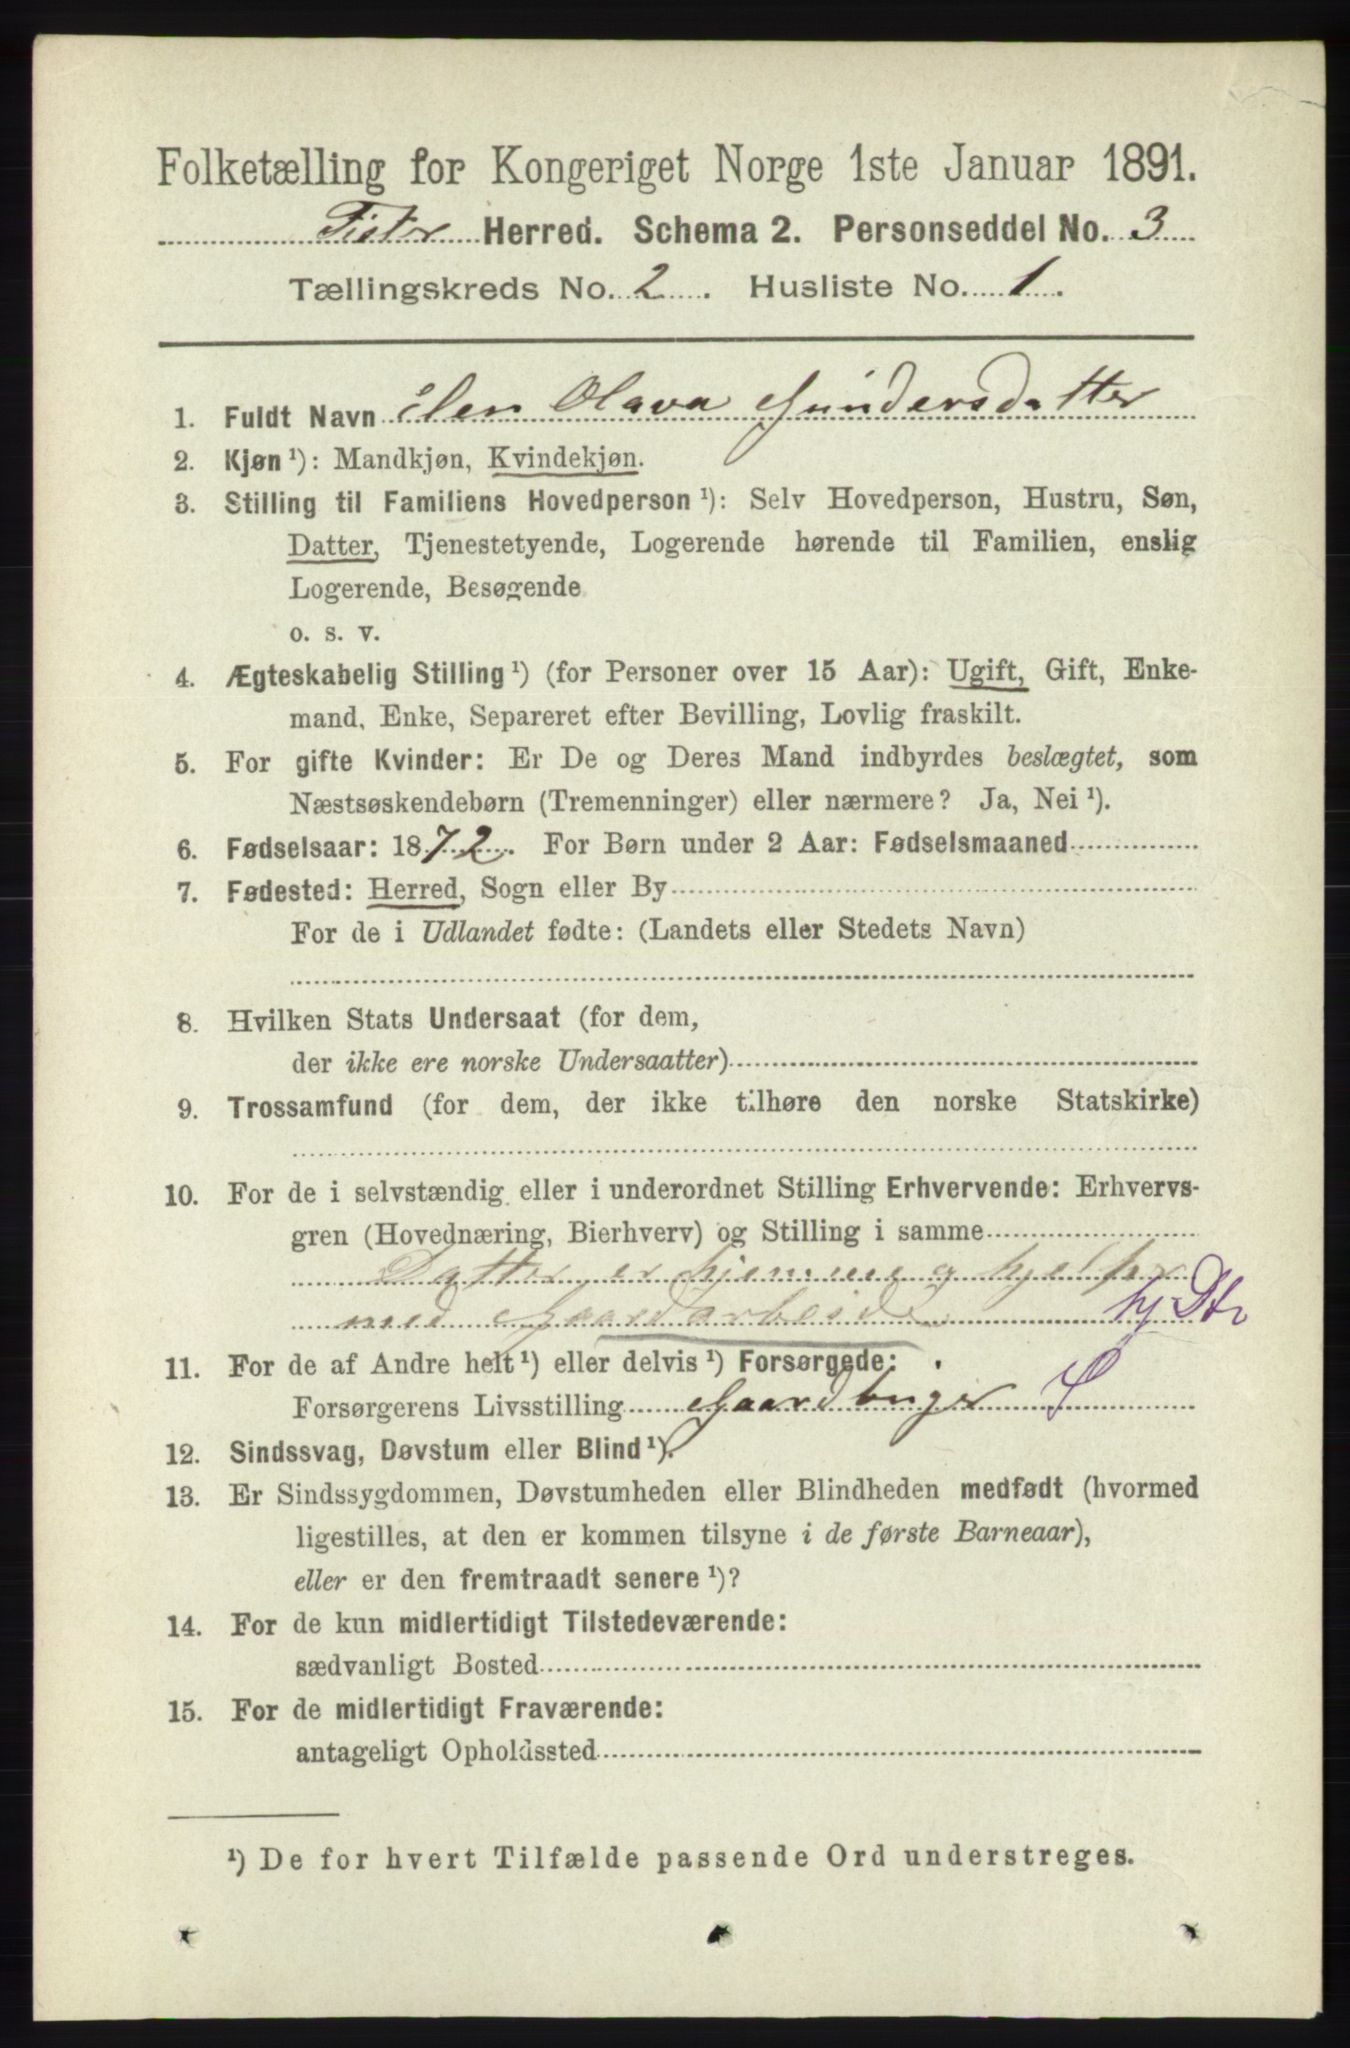 Folketælling for Kongeriget Norge 1ste Januar 1891.
Fister Herred. Schema 2. Personseddel No. 3
Tællingskreds No. 2. Husliste No. 1.
1. Fuldt Navn Elen Olava Gundersdatter
2. Kjøn ¹): Mandkjøn, Kvindekjøn.
3. Stilling til Familiens Hovedperson ¹): Selv Hovedperson, Hustru, Søn,
Datter, Tjenestetyende, Logerende hørende til Familien, enslig
Logerende, Besøgende
o. s. v.
4. Ægteskabelig Stilling ¹) (for Personer over 15 Aar): Ugift, Gift, Enke-
mand, Enke, Separeret efter Bevilling, Lovlig fraskilt.
5. For gifte Kvinder: Er De og Deres Mand indbyrdes beslægtet, som
Næstsøskendebørn (Tremenninger) eller nærmere? Ja, Nei ¹).
6. Fødselsaar: 1872. For Børn under 2 Aar: Fødselsmaaned
7. Fødested: Herred, Sogn eller By
For de i Udlandet fødte: (Landets eller Stedets Navn)
8. Hvilken Stats Undersaat (for dem,
der ikke ere norske Undersaatter)
9. Trossamfund (for dem, der ikke tilhøre den norske Statskirke)
10. For de i selvstændig eller i underordnet Stilling Erhvervende: Erhvervs-
gren (Hovednæring, Bierhverv) og Stilling i samme
Datter er hjemme og hjelper
med Gaardarbeide hj Dtr
11. For de af Andre helt ¹) eller delvis ¹) Forsørgede:
Forsørgerens Livsstilling Gaardbruger
12. Sindssvag, Døvstum eller Blind ¹).
13. Er Sindssygdommen, Døvstumheden eller Blindheden medfødt (hvormed
ligestilles, at den er kommen tilsyne i de første Barneaar),
eller er den fremtraadt senere ¹)?
14. For de kun midlertidigt Tilstedeværende:
sædvanligt Bosted
15. For de midlertidigt Fraværende:
antageligt Opholdssted
¹) De for hvert Tilfælde passende Ord understreges.